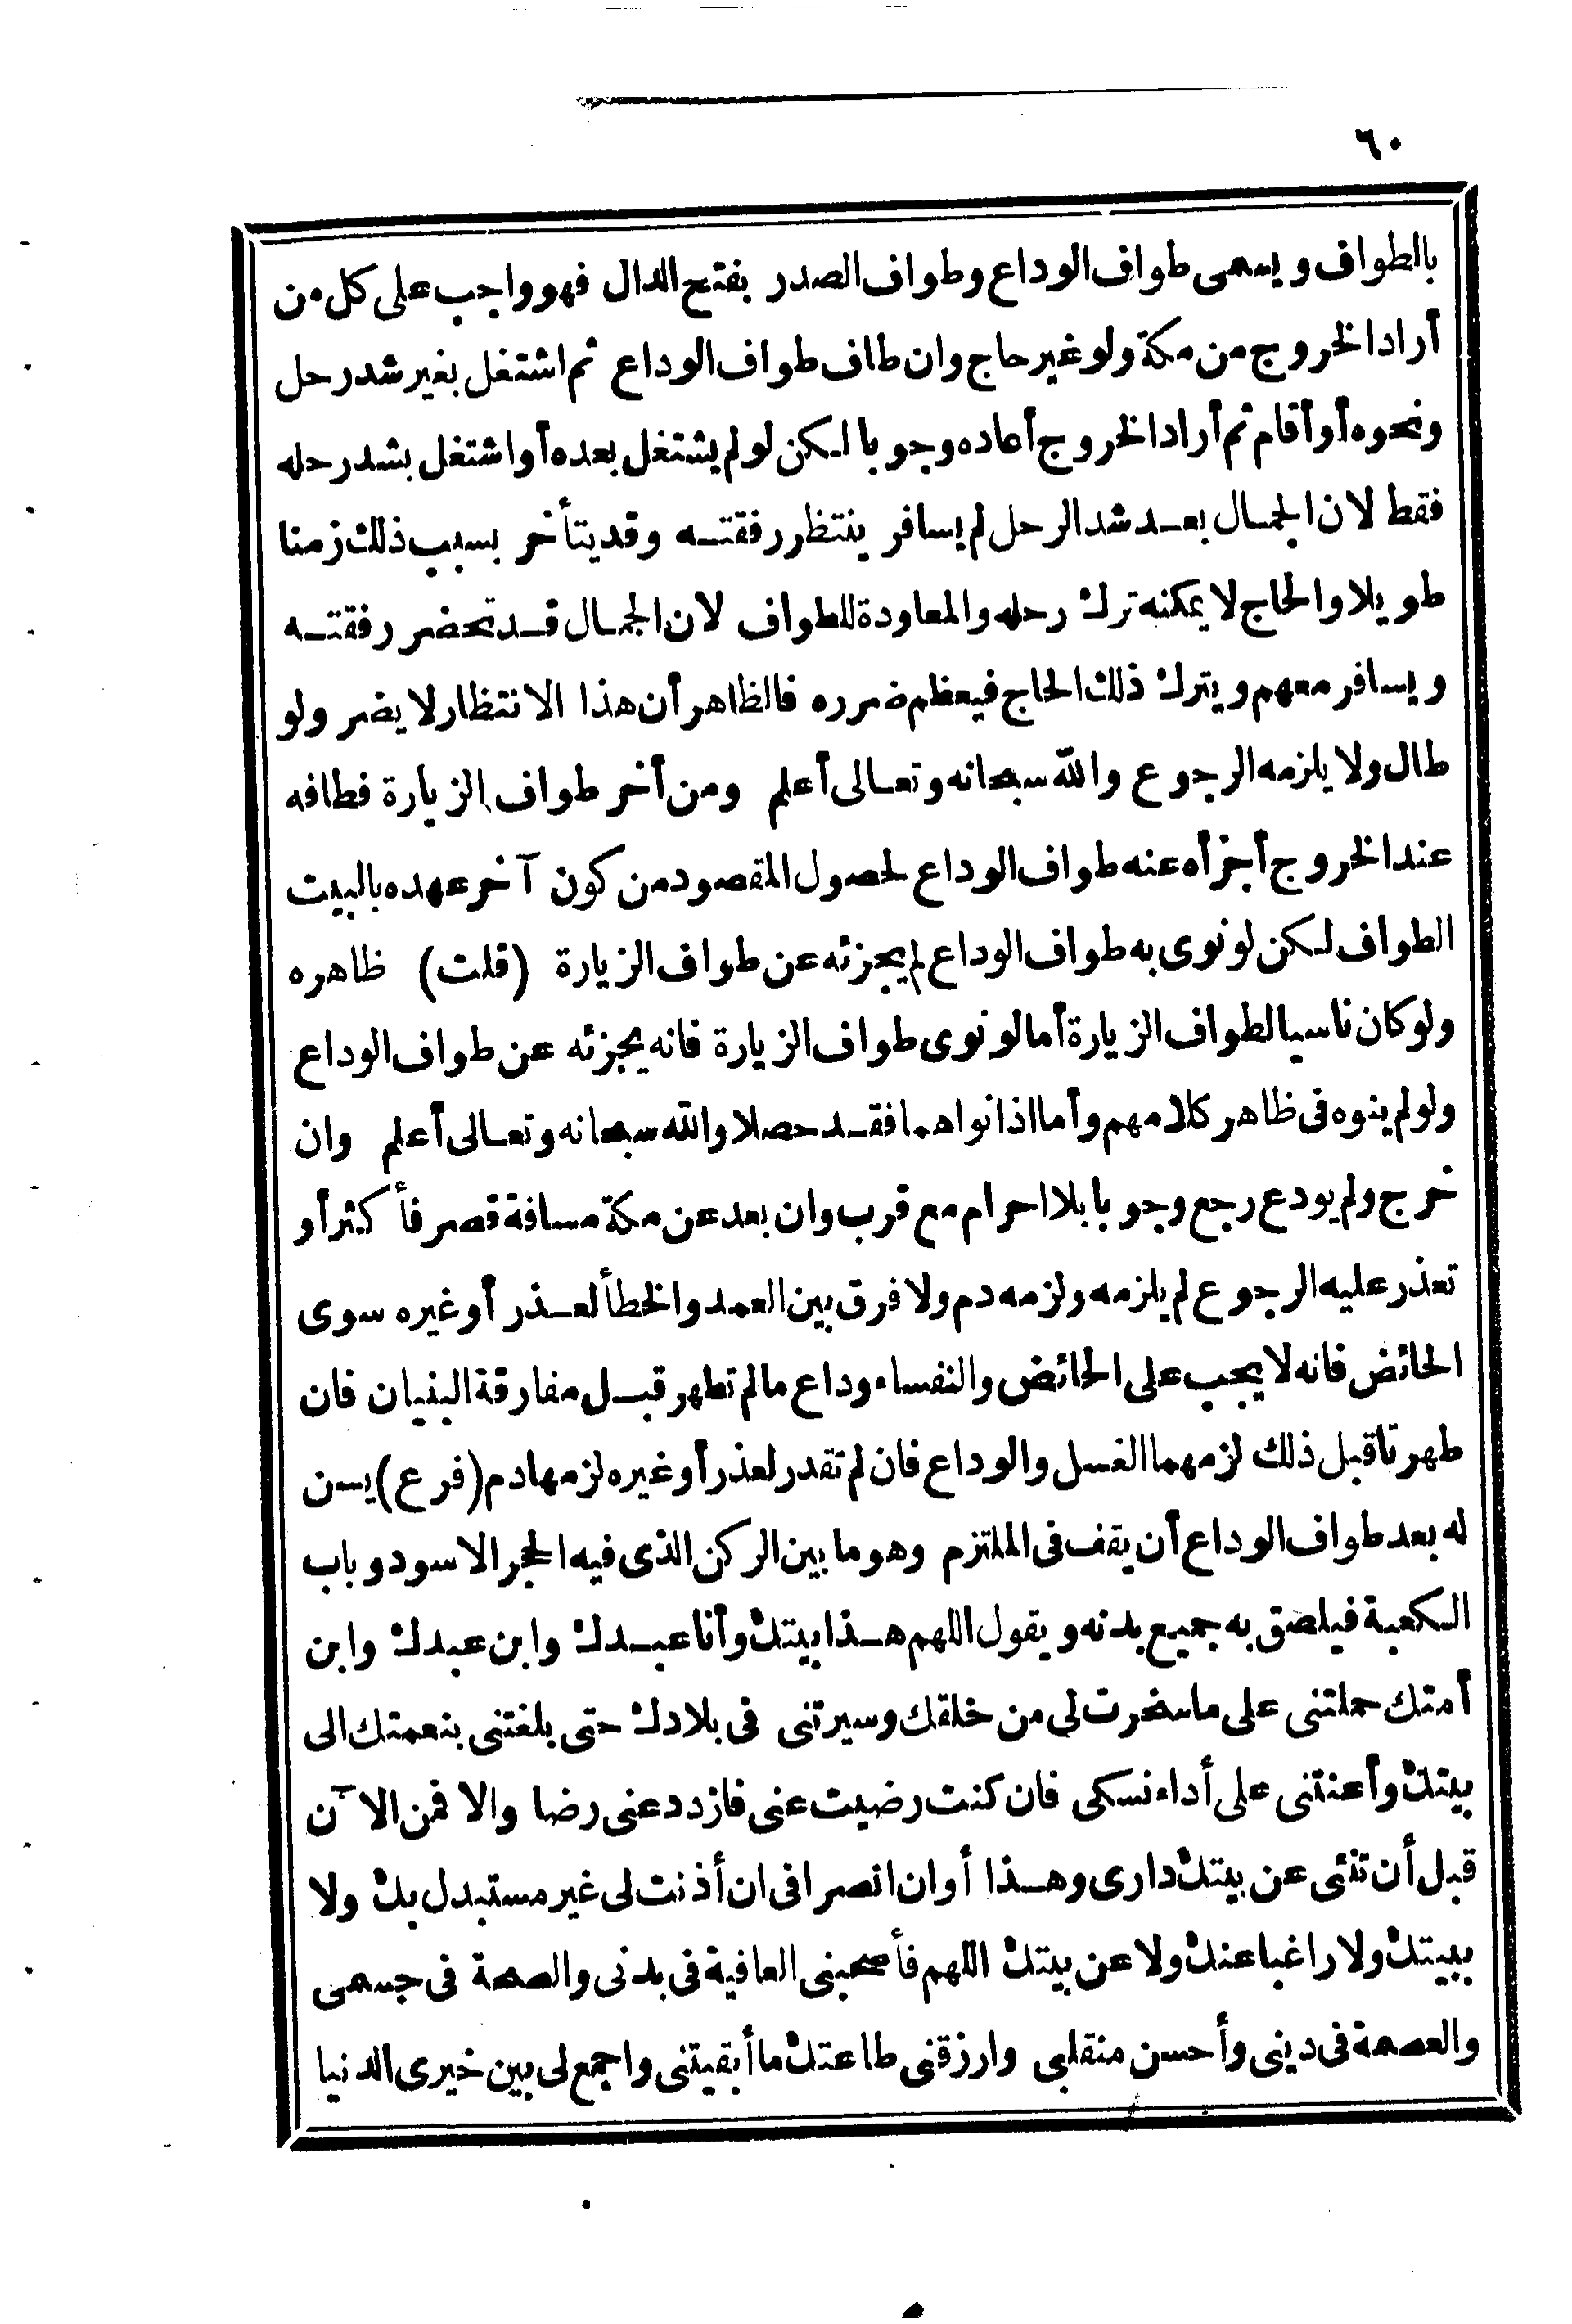 ٦٠
بالطواف ويسمى طواف الوداع وطواف الصدر بفتح الدال فهو واجب على كل من
أراد الخروج من مكة ولو غير حاج وان طاف طواف الوداع ثم اشتغل بغير شد رحل
ونحوه أو أقام ثم أراد الخروج أعاده وجوبا لكن لو لم يشتغل بعده أو اشتغل بشد رحله
فقط لان الجمال بعد شد الرحل لم يسافر ينتظر رفقته وقد يتأخر بسبب ذلك زمنا
طويلا والحاج لا يمكنه ترك رحله والمعاودة للطواف لان الجمال قد تحضر رفقته
ويسافر معهم ويترك ذلك الحاج فيعظم ضرره فالظاهر أن هذا الانتظار لا يضر ولو
طال ولا يلزمه الرجوع والله سبحانه وتعالى أعلم ومن أخر طواف الزيارة فطافه
عند الخروج أجزأه عنه طواف الوداع لحصول المقصود من كون آخر عهده بالبيت
الطواف لكن لو نوى به طواف الوداع لم يجزئه عن طواف الزيارة (قلت) ظاهره
ولو كان ناسيا لطواف الزيارة أما لو نوى طواف الزيارة فانه يجزئه عن طواف الوداع
ولو لم ينوه فى ظاهر كلامهم وأما اذا نواهما فقد حصلا والله سبحانه وتعالى أعلم وان
خرج ولم يودع رجع وجوبا بلا احرام مع قرب وان بعد عن مكة مسافة قصر فأكثر أو
تعذر عليه الرجوع لم يلزمه ولزمه دم ولا فرق بين العمد والخطأ لعذر أو غيره سوى
الحائض فانه لا يجب على الحائض والنفساء وداع ما لم تطهر قبل مفارقة البنيان فان
طهرتا قبل ذلك لزمهما الغسل والوداع فان لم تقدر لعذر أو غيره لزمها دم (فرع) يسن
له بعد طواف الوداع أن يقف فى الملتزم وهو ما بين الركن الذى فيه الحجر الاسود وباب
الكعبة فيلصق به جميع بدنه ويقول اللهم هذا بيتك وأنا عبدك وابن عبدك وابن
أمتك حملتنى على ما سخرت لى من خلقك وسيرتنى فى بلادك حتى بلغتنى بنعمتك الى
بيتك وأعنتنى على أداء نسكى فان كنت رضيت عنى فازدد عنى رضا والا فمن الآن
قبل أن تنئى عن بيتك دارى وهذا أوان انصرافى ان أذنت لى غير مستبدل بك ولا
ببيتك ولا راغبا عنك ولا عن بيتك اللهم فأصحبنى العافية فى بدنى والصحة فى جسمى
والعصمة فى دينى وأحسن منقلبى وارزقنى طاعتك ما أبقيتنى واجمع لى بين خيرى الدنيا